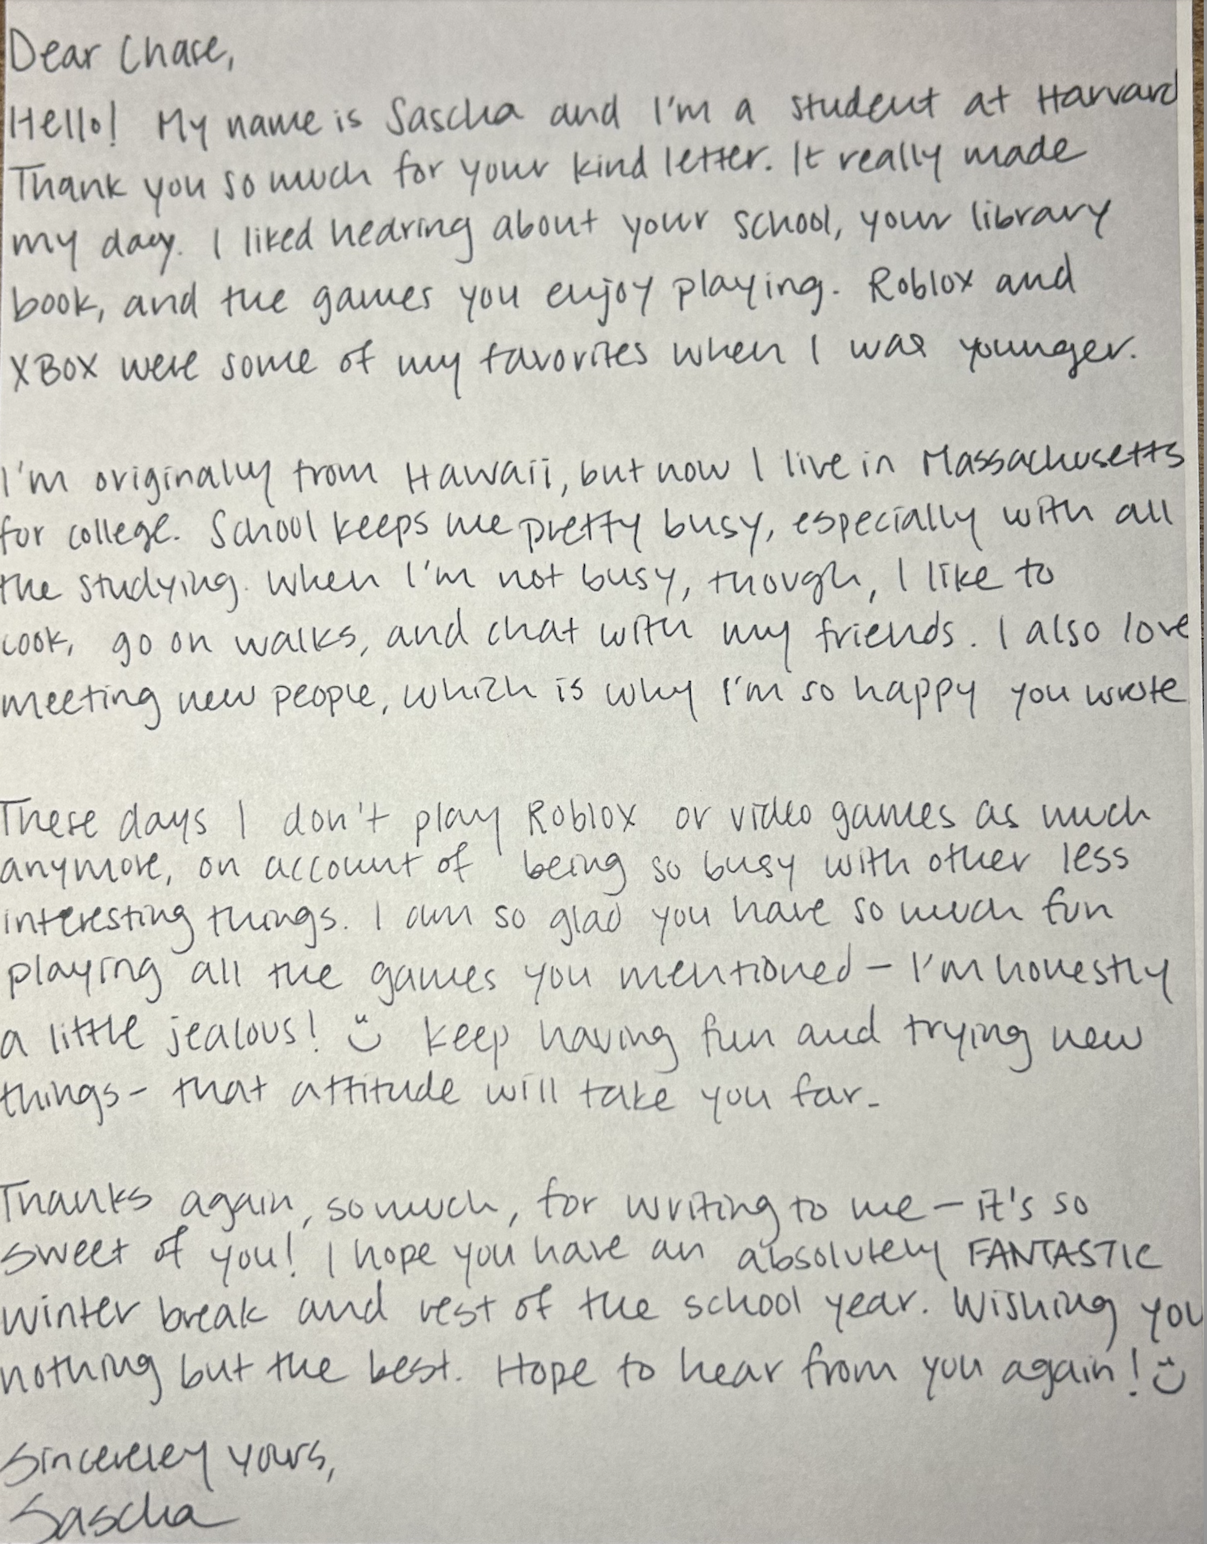 Dear Chase,
Hello! My name is Sascha and I'm a student at Harvard
Thank you so much for your kind letter. It really made
my day. I liked hearing about your school, your library
book, and the games you enjoy playing. Roblox and
XBOX were some of my favorites when I was younger.
I'm originally from Hawaii, but now I live in Massachusetts
for college. School keeps me pretty busy, especially with all
the studying. When I'm not busy, though, I like to
cook, go on walks, and chat with my friends. I also love
meeting new people, which is why I'm so happy you wrote
These days I don't play Roblox or video games as much
anymore, on account of being so busy with other less
interesting things. I am so glad you have so much fun
playing all the games you mentioned – I'm honestly
a little jealous! Keep having fun and trying new
things – that attitude will take you far.
Thanks again, so much, for writing to me – it's so
sweet of you! I hope you have an absolutely FANTASTIC
winter break and rest of the school year. Wishing you
nothing but the best. Hope to hear from you again!
Sincereley yours,
Sascha